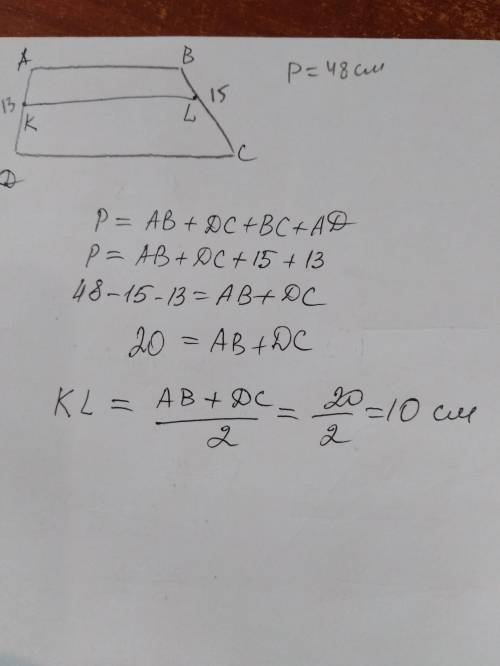 A B P = 48 см
13 15
K L
D C
P = AB + DC + BC + AD
P = AB + DC + 15 + 13
48 - 15 - 13 = AB + DC
20 = AB + DC
KL = (AB + DC)/2 = 20/2 = 10 см